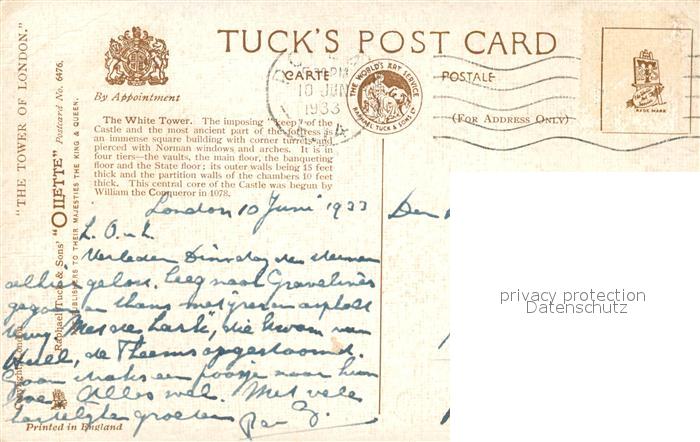 TUCK'S POST CARD
CARTE POSTALE
By Appointment
(For Address Only)
THE WORLD'S ART SERVICE
RAPHAEL TUCK & SONS LTD
30PM
10 JUN
1933
"THE TOWER OF LONDON."
Postcard No. 6476.
Raphael Tuck & Sons' "OILETTE"
PUBLISHERS TO THEIR MAJESTIES THE KING & QUEEN.
The White Tower. The imposing "keep" of the
Castle and the most ancient part of the fortress is
an immense square building with corner turrets and
pierced with Norman windows and arches. It is in
four tiers—the vaults, the main floor, the banqueting
floor and the State floor; its outer walls being 15 feet
thick and the partition walls of the chambers 10 feet
thick. This central core of the Castle was begun by
William the Conqueror in 1078.
London 10 Juni 1933
Den
L. O. en L.
Verleden Dinsdag
alhier gelost. Leeg naar Gravelines
gegaan en thans met asphalt
terug. Met de "Lark", die kwam van
Hull, de Theems opgestoomd.
Gaan straks een poosje naar hem
toe. Alles wel. Met vele
hartelijke groeten
Printed in England
privacy protection
Datenschutz